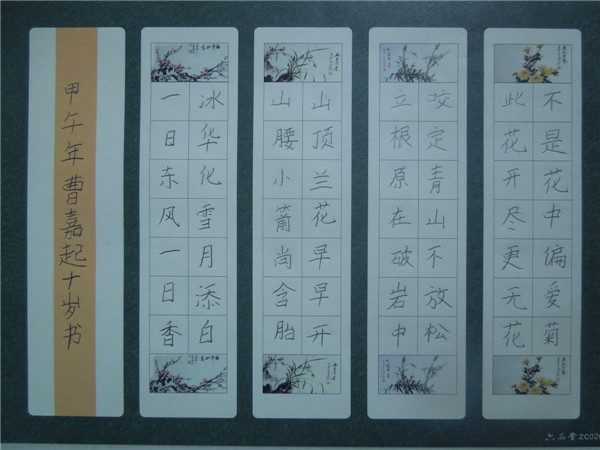 不是花中偏爱菊
此花开尽更无花
咬定青山不放松
立根原在破岩中
山顶兰花早早开
山腰小箭尚含胎
冰华化雪月添白
一日东风一日香
甲午年曹嘉起十岁书
六品堂 ZC026